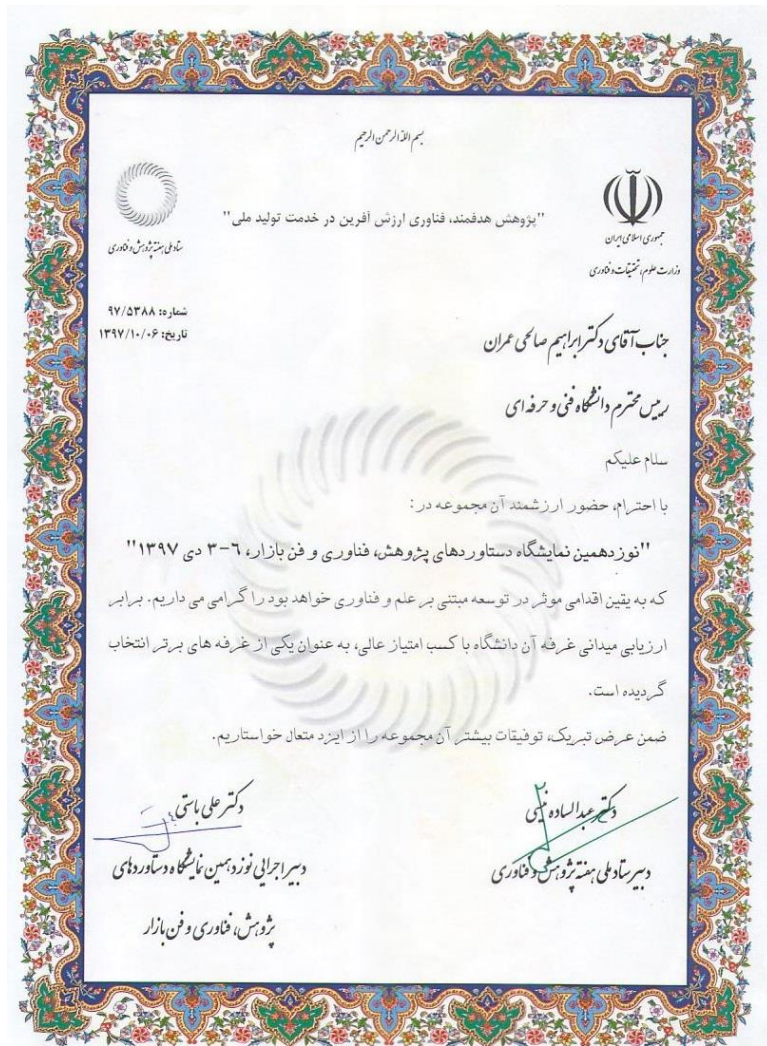 بسم الله الرحمن الرحیم
جمهوری اسلامی ایران
وزارت علوم، تحقیقات و فناوری
"پژوهش هدفمند، فناوری ارزش آفرین در خدمت تولید ملی"
ستاد ملی هفته پژوهش و فناوری
شماره: ۹۷/۵۳۸۸
تاریخ: ۱۳۹۷/۱۰/۰۶
جناب آقای دکتر ابراهیم صالحی عمران
رییس محترم دانشگاه فنی و حرفه ای
سلام علیکم
با احترام، حضور ارزشمند آن مجموعه در:
"نوزدهمین نمایشگاه دستاوردهای پژوهش، فناوری و فن بازار، ۶-۳ دی ۱۳۹۷"
که به یقین اقدامی موثر در توسعه مبتنی بر علم و فناوری خواهد بود را گرامی می داریم. برابر
ارزیابی میدانی غرفه آن دانشگاه با کسب امتیاز عالی، به عنوان یکی از غرفه های برتر انتخاب
گردیده است.
ضمن عرض تبریک، توفیقات بیشتر آن مجموعه را از ایزد متعال خواستاریم.
دکتر عبدالساده نیسی
دبیر ستاد ملی هفته پژوهش و فناوری
دکتر علی باستی
دبیر اجرایی نوزدهمین نمایشگاه دستاوردهای
پژوهش، فناوری و فن بازار